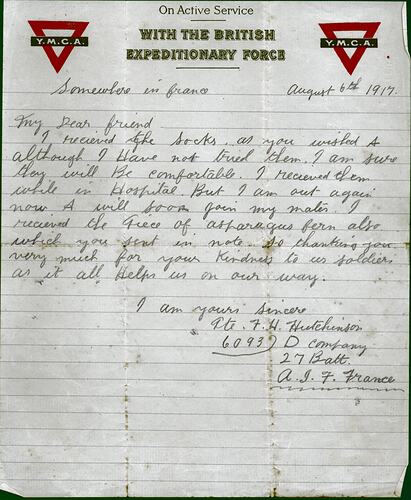 On Active Service
WITH THE BRITISH
EXPEDITIONARY FORCE
Y.M.C.A.
Y.M.C.A.
Somewhere in france August 6th 1917.
My Dear friend
I recieved the socks. as you wished &
although I Have not tried them. I am sure
they will Be comfortable. I recieved them
while in Hospital. But I am out again
now & will soon join my mates. I
recieved the Piece of asparagus fern also
which you sent in note. So thanking you
very much for your kindness to us soldiers
as it all Helps us on our way.
I am yours sincere
Pte. F. H. Hutchinson
6093) D company
27 Batt.
A. I. F. France